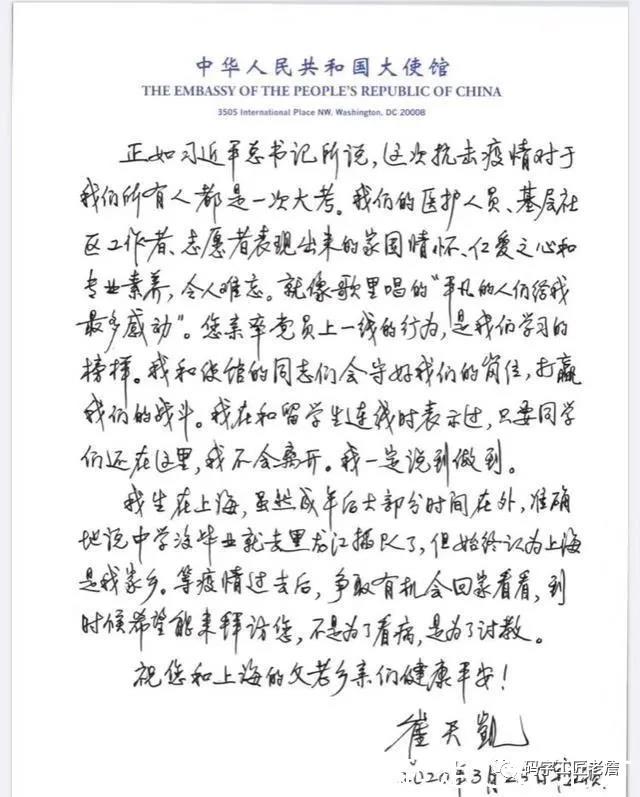 中华人民共和国大使馆
THE EMBASSY OF THE PEOPLE'S REPUBLIC OF CHINA
3505 International Place NW, Washington, DC 20008
正如习近平总书记所说，这次抗击疫情对于
我们所有人都是一次大考。我们的医护人员、基层社
区工作者、志愿者表现出来的家国情怀、仁爱之心和
专业素养，令人难忘。就像歌里唱的“平凡的人们给我
最多感动”。您亲率党员上一线的行为，是我们学习的
榜样。我和使馆的同志们会守好我们的岗位，打赢
我们的战斗。我在和留学生连线时表示过，只要同学
们还在这里，我不会离开。我一定说到做到。
我生在上海，虽然成年后大部分时间在外，准确
地说中学没毕业就去黑龙江插队了，但始终认为上海
是我家乡。等疫情过去后，争取有机会回家看看，到
时候希望能来拜访您，不是为了看病，是为了讨教。
祝您和上海的父老乡亲们健康平安！
崔天凯
码字工匠老詹
2020年3月25日